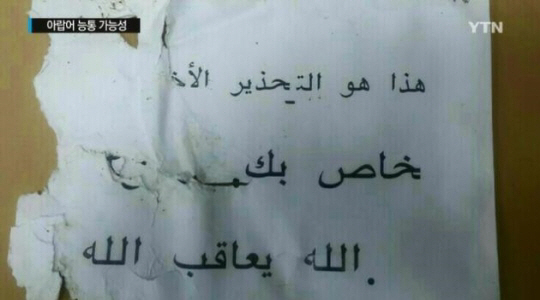 아랍어 능통 가능성
YTN
هذا هو التحذير
خاص بك
الله يعاقب الله .